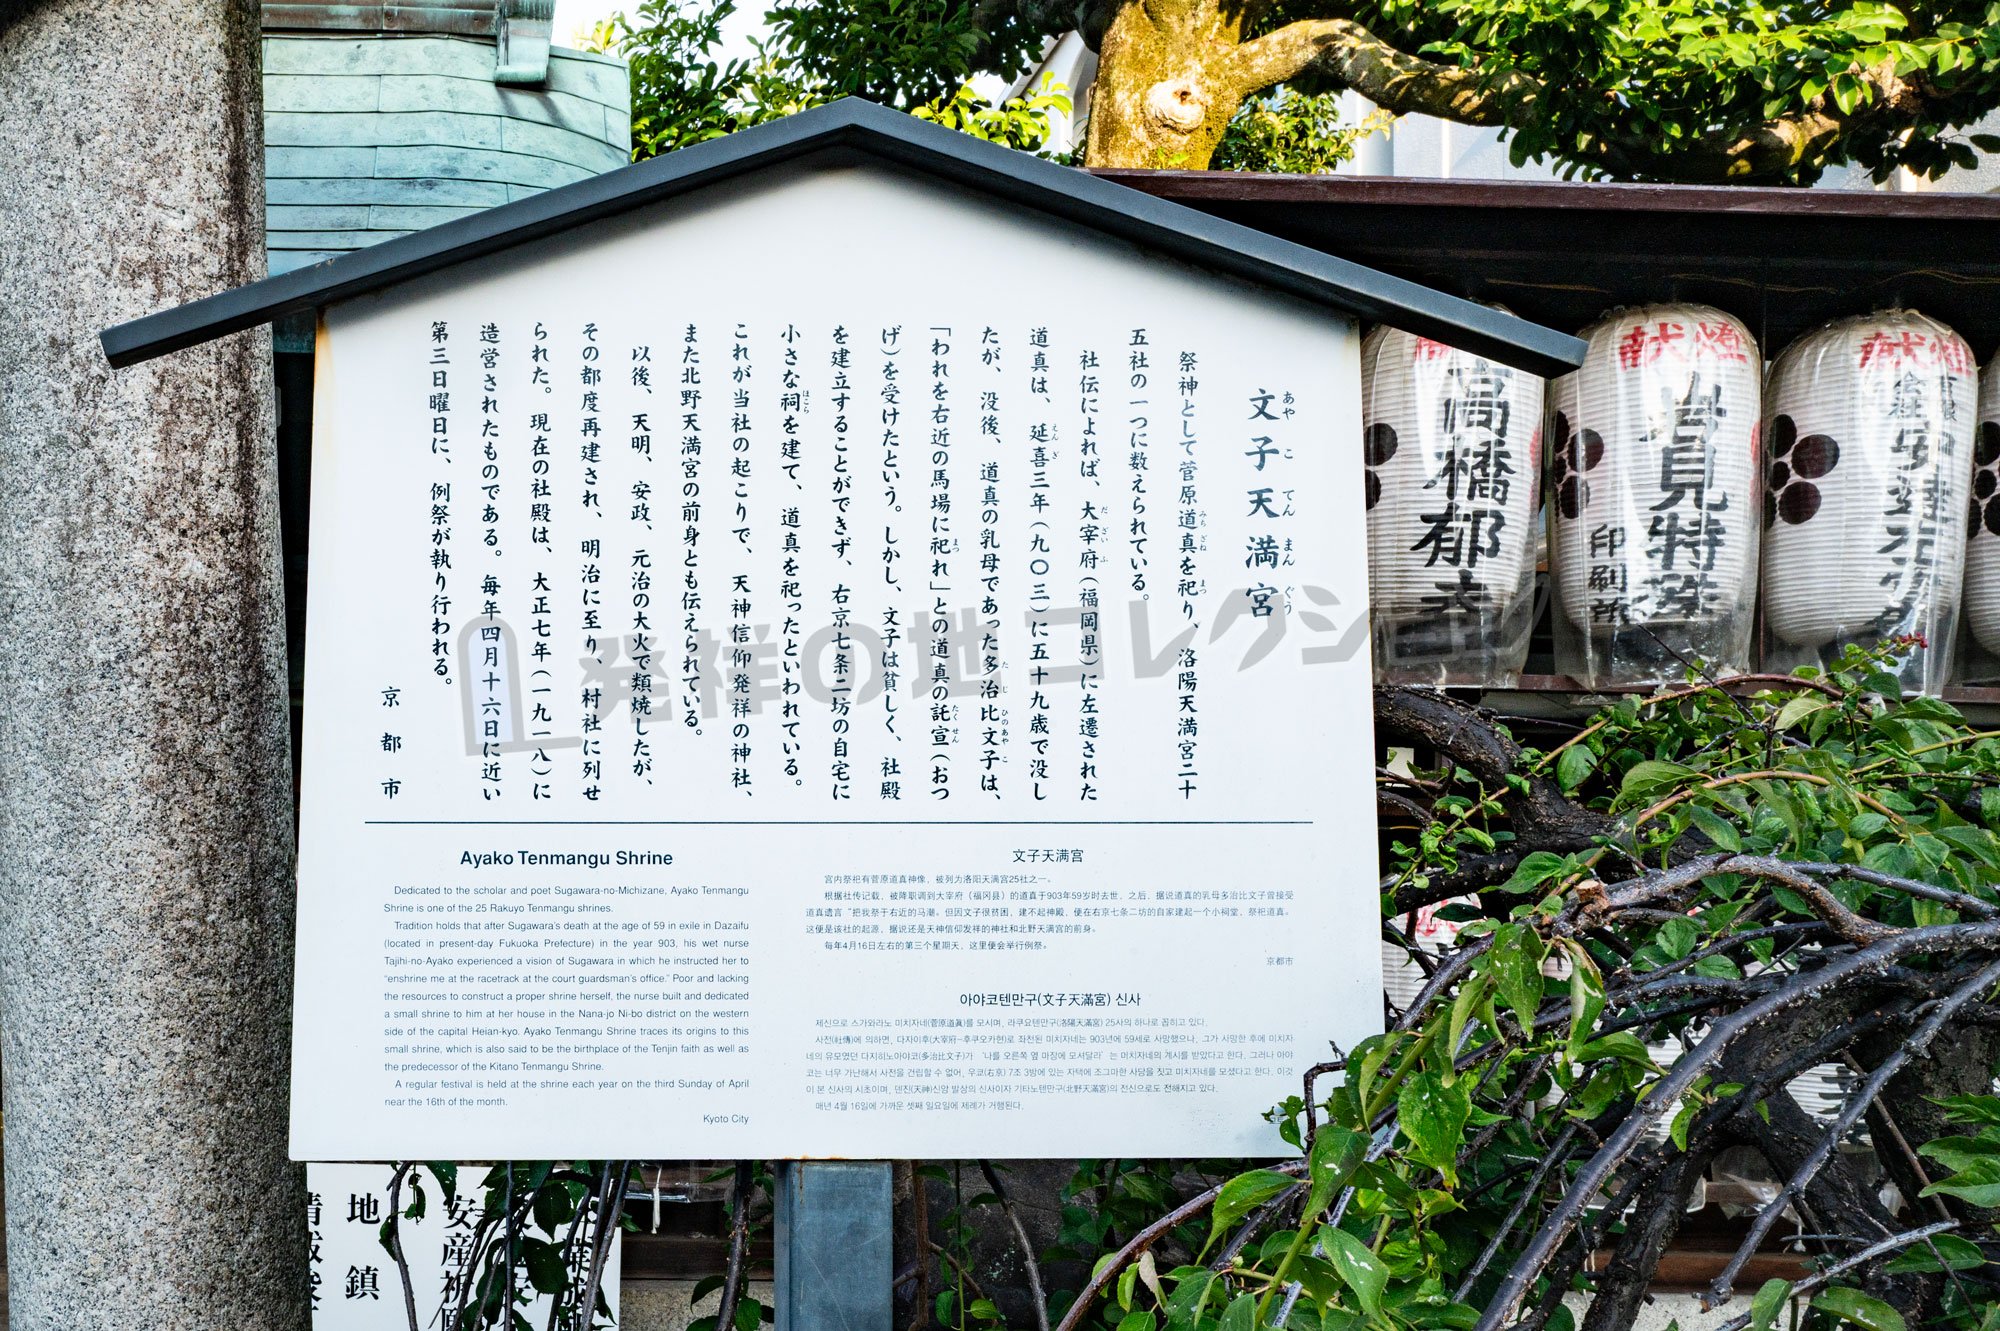 文子天満宮
あやこてんまんぐう
祭神として菅原道真を祀り、洛陽天満宮二十
五社の一つに数えられている。
社伝によれば、大宰府(福岡県)に左遷された
道真は、延喜三年(九〇三)に五十九歳で没し
たが、没後、道真の乳母であった多治比文子は、
「われを右近の馬場に祀れ」との道真の託宣(おつ
げ)を受けたという。しかし、文子は貧しく、社殿
を建立することができず、右京七条二坊の自宅に
小さな祠を建て、道真を祀ったといわれている。
これが当社の起こりで、天神信仰発祥の神社、
また北野天満宮の前身とも伝えられている。
以後、天明、安政、元治の大火で類焼したが、
その都度再建され、明治に至り、村社に列せ
られた。現在の社殿は、大正七年(一九一八)に
造営されたものである。毎年四月十六日に近い
第三日曜日に、例祭が執り行われる。
京都市
Ayako Tenmangu Shrine
Dedicated to the scholar and poet Sugawara-no-Michizane, Ayako Tenmangu
Shrine is one of the 25 Rakuyo Tenmangu shrines.
Tradition holds that after Sugawara's death at the age of 59 in exile in Dazaifu
(located in present-day Fukuoka Prefecture) in the year 903, his wet nurse
Tajihi-no-Ayako experienced a vision of Sugawara in which he instructed her to
"enshrine me at the racetrack at the court guardsman's office." Poor and lacking
the resources to construct a proper shrine herself, the nurse built and dedicated
a small shrine to him at her house in the Nana-jo Ni-bo district on the western
side of the capital Heian-kyo. Ayako Tenmangu Shrine traces its origins to this
small shrine, which is also said to be the birthplace of the Tenjin faith as well as
the predecessor of the Kitano Tenmangu Shrine.
A regular festival is held at the shrine each year on the third Sunday of April
near the 16th of the month.
Kyoto City
文子天满宫
宫内祭祀有菅原道真神像，被列为洛阳天满宫25社之一。
根据社传记载，被降职调到大宰府（福冈县）的道真于903年59岁时去世，之后，据说道真的乳母多治比文子曾接受
道真遗言“把我祭于右近的马潮。但因文子很贫困，建不起神殿，便在右京七条二坊的自家建起一个小祠堂，祭祀道真。
这便是该社的起源，据说还是天神信仰发祥的神社和北野天满宫的前身。
每年4月16日左右的第三个星期天，这里便会举行例祭。
京都市
아야코텐만구(文子天滿宮) 신사
제신으로 스가와라노 미치자네(菅原道眞)를 모시며, 라쿠요텐만구(洛陽天滿宮) 25사의 하나로 꼽히고 있다.
사전(社傳)에 의하면, 다자이후(大宰府-후쿠오카현)로 좌천된 미치자네는 903년에 59세로 사망했으나, 그가 사망한 후에 미치자
네의 유모였던 다지히노아야코(多治比文子)가 '나를 오른쪽 옆 마장에 모셔달라'는 미치자네의 계시를 받았다고 한다. 그러나 아야
코는 너무 가난해서 사전을 건립할 수 없어, 우쿄(右京) 7조 3방에 있는 자택에 조그마한 사당을 짓고 미치자네를 모셨다고 한다. 이것
이 본 신사의 시초이며, 덴진(天神)신앙 발상의 신사이자 기타노텐만구(北野天滿宮)의 전신으로도 전해지고 있다.
매년 4월 16일에 가까운 셋째 일요일에 제례가 거행된다.
発祥の地コレクション
献燈
高橋郁
献燈
岩見特殊
印刷所
献燈
安達
安産祈願
地鎮